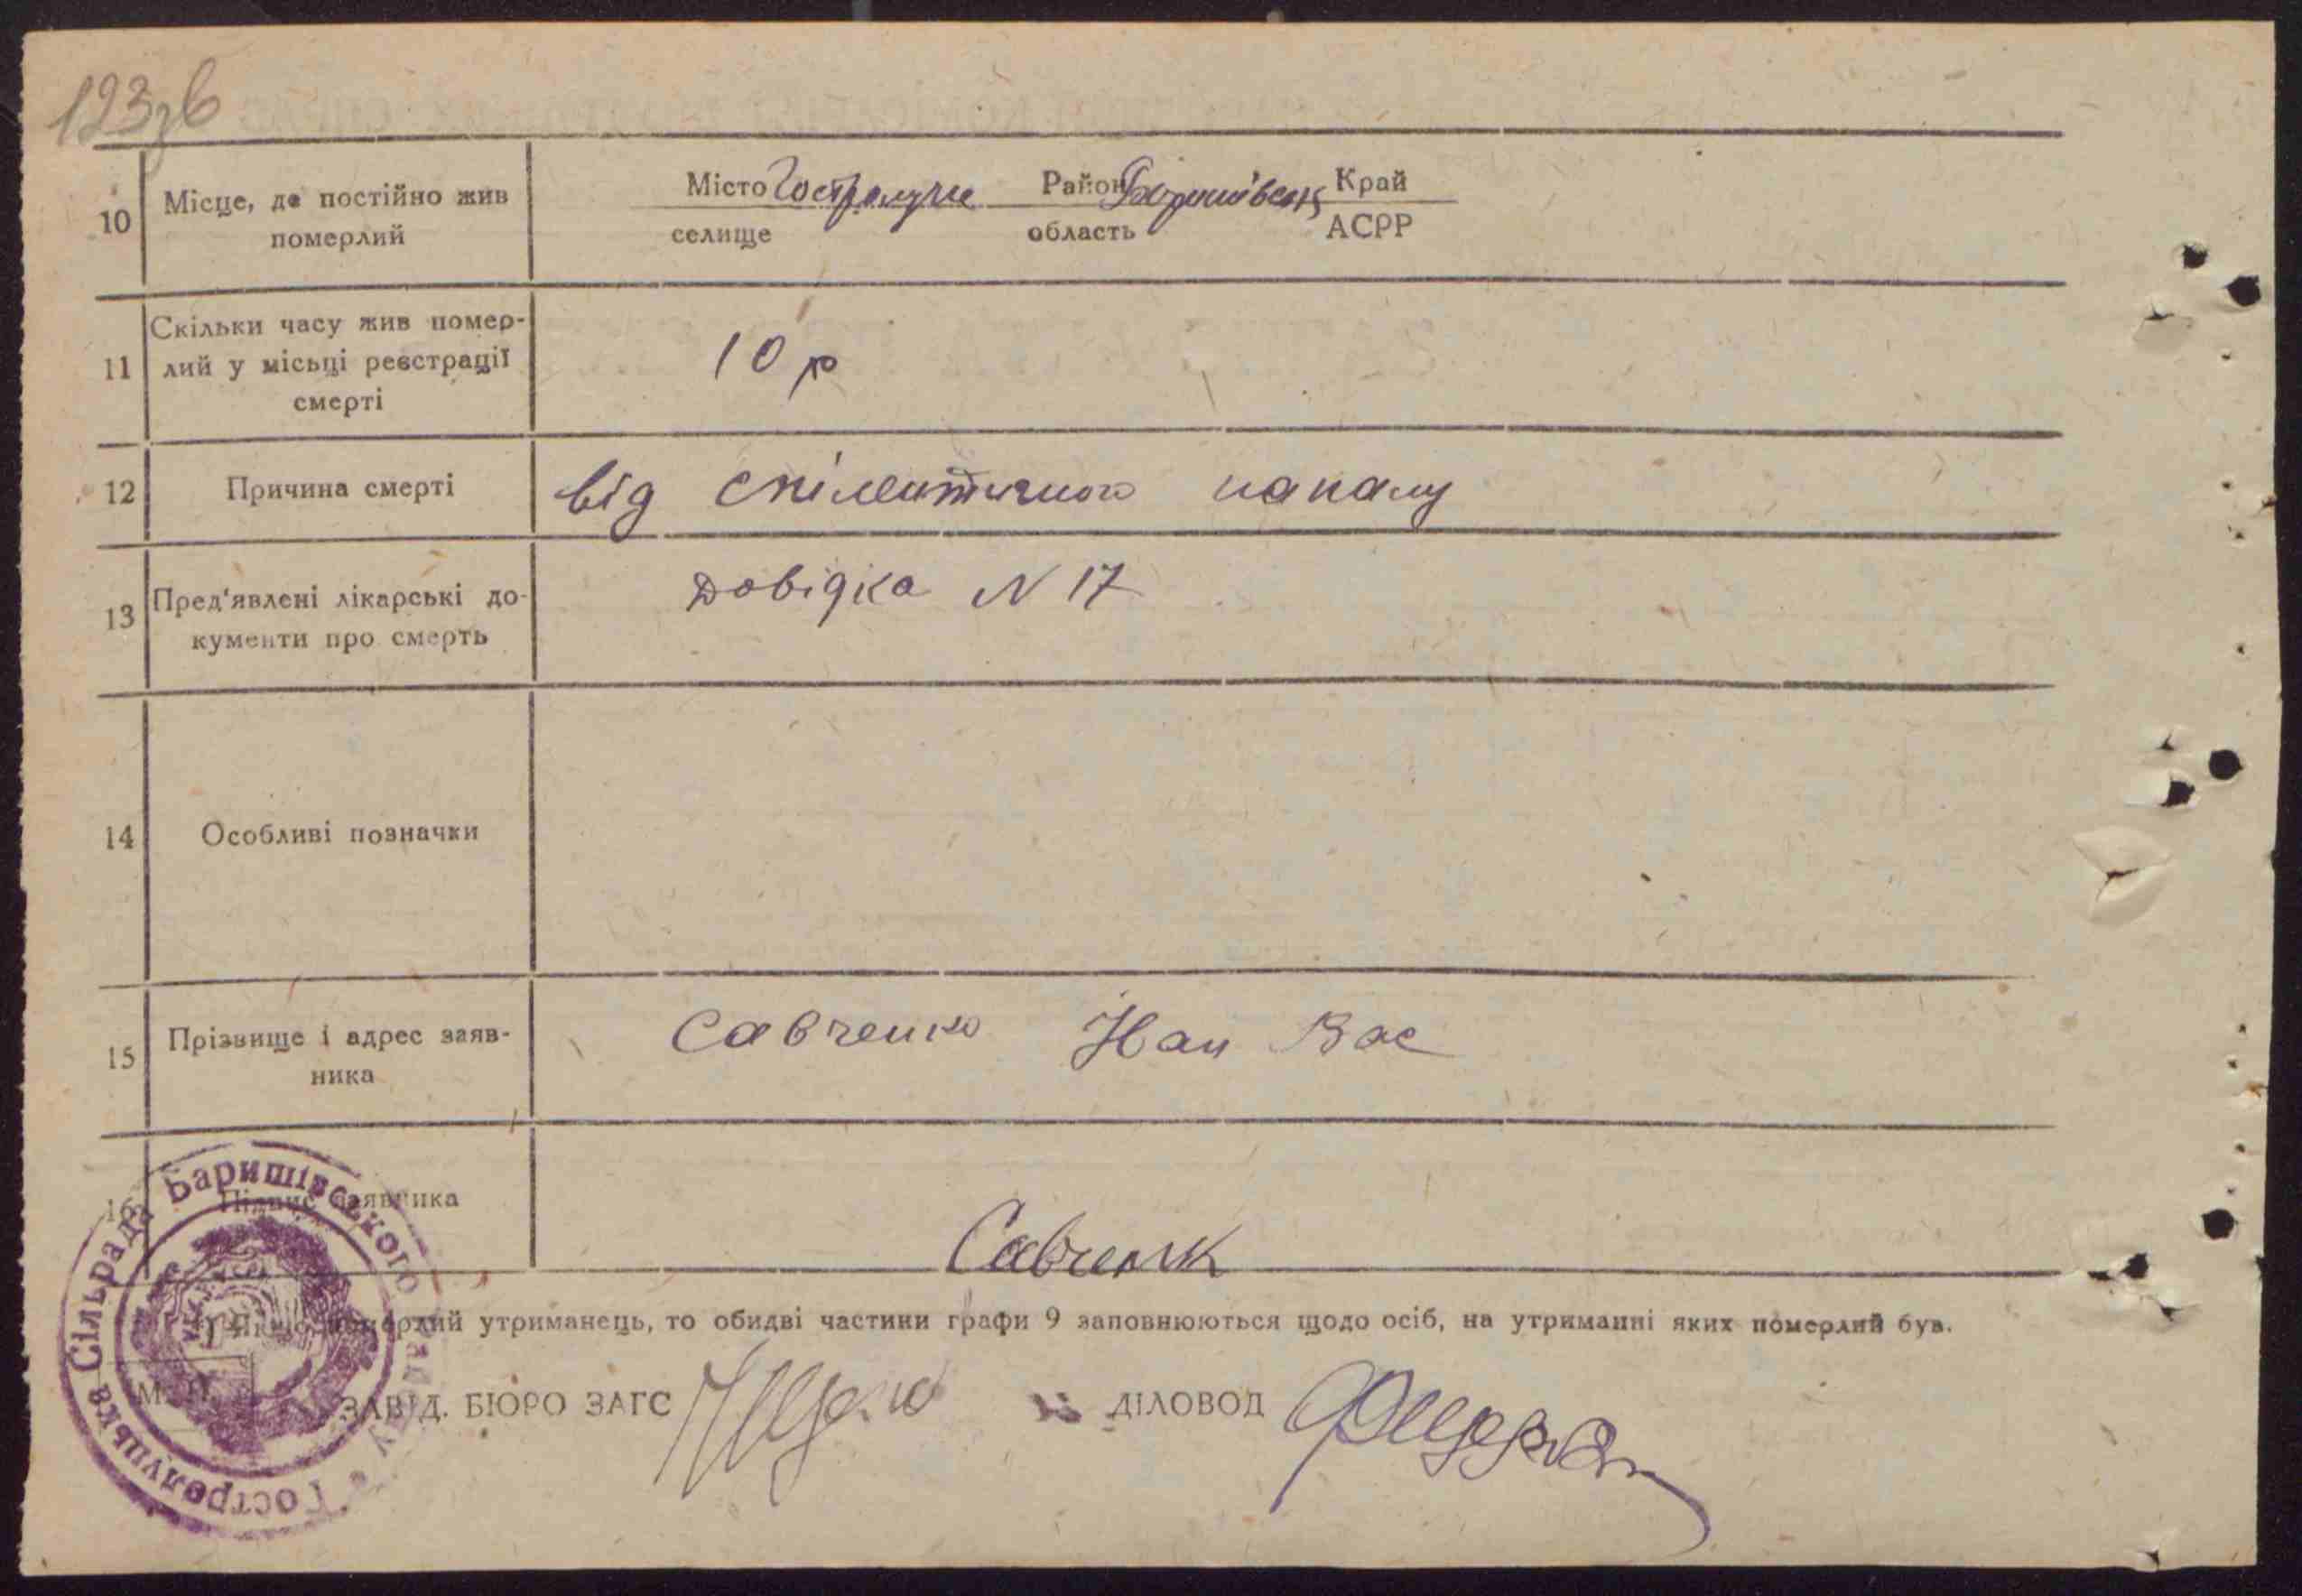 123зв
10 Місце, де постійно жив померлий
Місто Гостролуччя Район Баришівськ Край
селище область АСРР
11 Скільки часу жив помер-
лий у місьці реєстрації
смерті
10 р
12 Причина смерті від епілептичного нападу
13 Пред'явлені лікарські до-
кументи про смерть
Довідка N 17
14 Особливі позначки
15 Прізвище і адрес заяв-
ника
Савченко Іван Вас
16 Підпис заявника
Савченк
Якщо померлий утриманець, то обидві частини графи 9 заповнюються щодо осіб, на утриманні яких померлий був.
М. П. ЗАВІД. БЮРО ЗАГС ДІЛОВОД
Гостролуцька Сільрада Баришівського